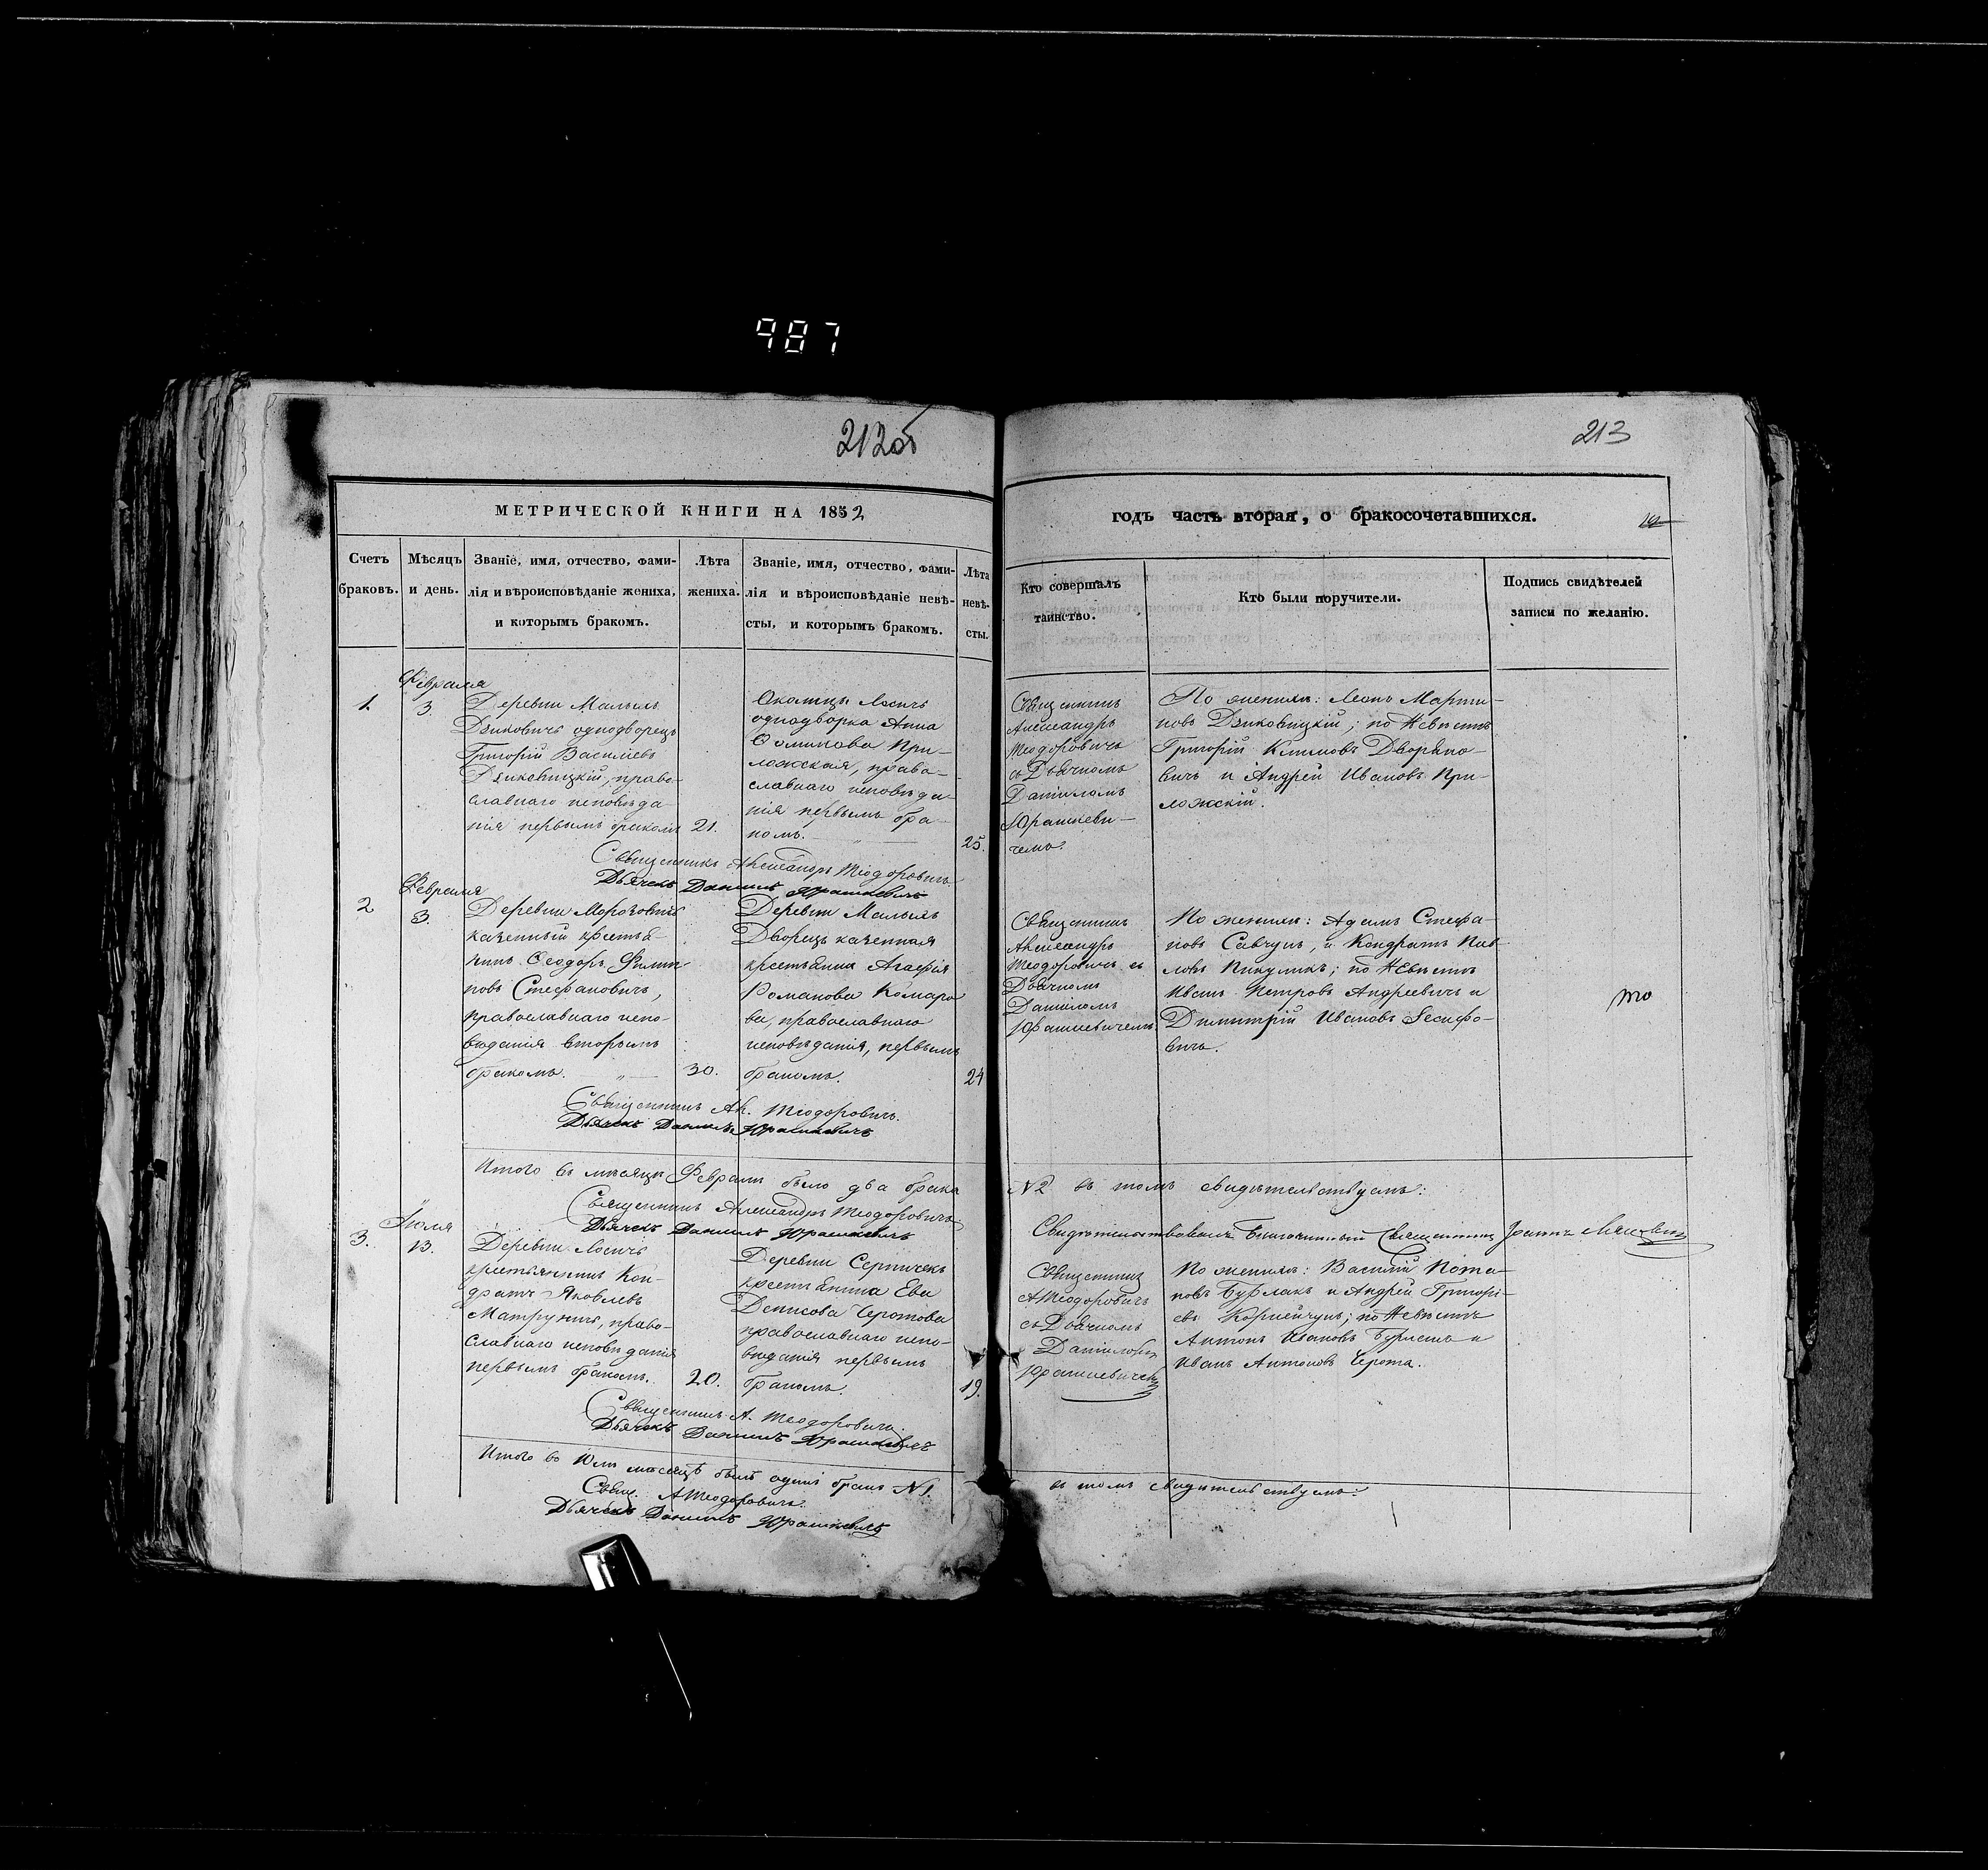 987
212об
213
МЕТРИЧЕСКОЙ КНИГИ НА 1852
годъ часть вторая, о бракосочетавшихся.
Счетъ
браковъ.
Мѣсяцъ
и день.
Званіе, имя, отчество, фами-
лія и вѣроисповѣданіе жениха,
и которымъ бракомъ.
Лѣта
жениха.
Званіе, имя, отчество, фами-
лія и вѣроисповѣданіе невѣ-
сты, и которымъ бракомъ.
Лѣта
невѣ-
сты.
Кто совершалъ
таинство.
Кто были поручители.
Подпись свидѣтелей
записи по желанію.
1.
Февраля
3.
Деревни Малыхъ
Дзиковичъ однодворецъ
Григорій Василіевъ
Дзиковицкій, право-
славнаго исповѣда-
нія первымъ бракомъ
21.
Околицы Лосичъ
однодворка Анна
Ѳоминова При-
ложская, право-
славнаго исповѣда-
нія первымъ бра-
комъ.
25.
Священникъ
Александръ
Теодоровичъ
съ Дьячкомъ
Даніиломъ
Юрашкеви-
чемъ
По женихѣ: Леонъ Марти-
новъ Дзиковицкій; по Невѣстѣ
Григорій Климовъ Дворяно-
вичъ и Андрей Ивановъ При-
ложскій.
Священникъ Александръ Теодоровичъ
Дьячекъ Даніилъ Юрашкевичъ
2
Февраля
3.
Деревни Морозовичъ
казенный крестья-
нинъ Ѳеодоръ Филип-
повъ Стефановичъ,
православнаго испо-
вѣданія вторымъ
бракомъ.
30.
Деревни Малыхъ
Дворецъ казенная
крестьянка Агафія
Романова Комаро
ва, православнаго
исповѣданія, первымъ
бракомъ.
24
Священникъ
Александръ
Теодоровичъ съ
Дьячкомъ
Даніиломъ
Юрашкевичемъ
По женихѣ: Адамъ Стефа-
новъ Савчукъ, и Кондратъ Пав-
ловъ Пикуликъ; по Невѣстѣ
Иванъ Петровъ Андреевичъ и
Димитрій Ивановъ
вичъ.
Священникъ Ал. Теодоровичъ.
Дьячекъ Даніилъ Юрашкевичъ
Итого въ мѣсяцѣ Февралѣ было два брака
№2 въ томъ свидѣтельствуемъ:
Священникъ Александръ Теодоровичъ
Дьячекъ Даніилъ Юрашкевичъ
Свидѣтельствовалъ Благочинный Священникъ
3.
Іюля
13.
Деревни Лосичъ
крестьянинъ Кон-
дратъ Яковлевъ
Матрунчъ, право-
славнаго исповѣданія
первымъ бракомъ.
20.
Деревни Серничекъ
крестьянка Ева
Денисова Черотова
православнаго испо-
вѣданія первымъ
бракомъ.
19.
Священникъ
А Теодоровичъ
съ Дьячкомъ
Даніиломъ
Юрашкевичемъ
По женихѣ: Василій Пота-
повъ Бурлакъ и Андрей Григорі-
евъ Корнейчукъ; по Невѣстѣ
Антонъ Ивановъ и
Иванъ Антоновъ Черота.
Священникъ А. Теодоровичъ.
Дьячекъ Даніилъ Юрашкевичъ
Итого въ Юлѣ мѣсяцѣ былъ одинъ бракъ №1.
въ томъ свидѣтельствуемъ:
Свящ. А Теодоровичъ.
Дьячекъ Даніилъ Юрашкевичъ